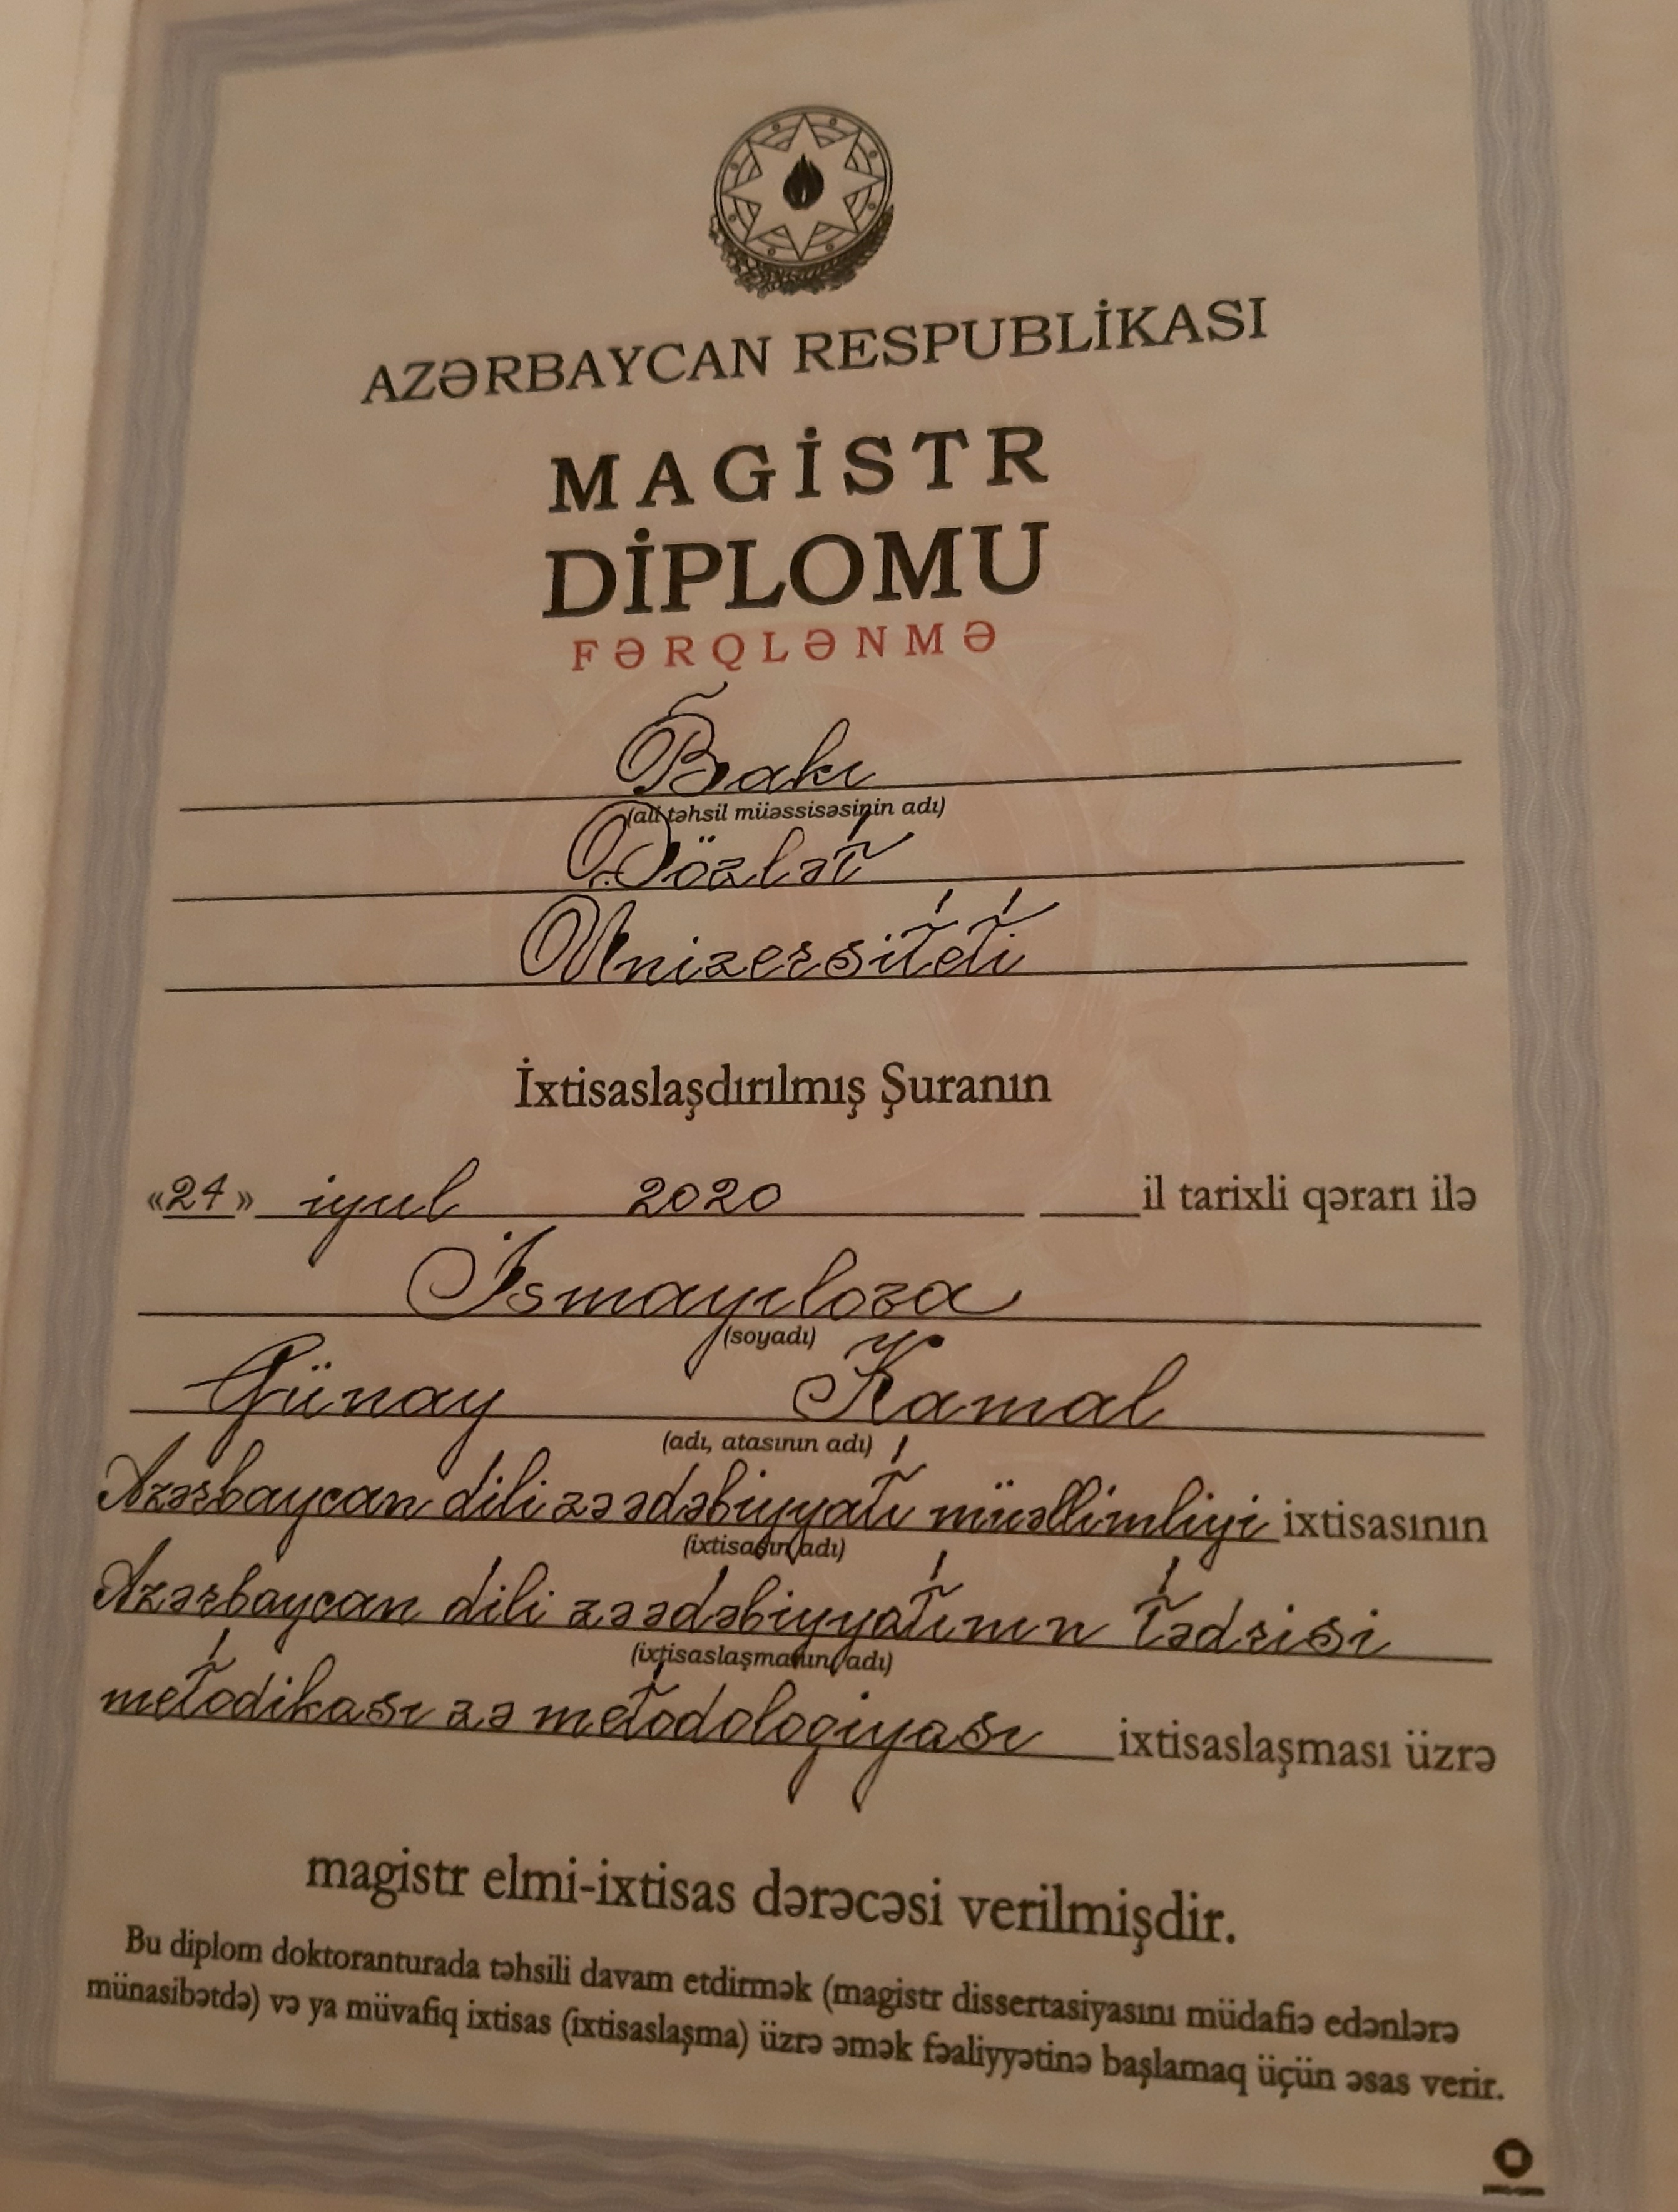 AZƏRBAYCAN RESPUBLİKASI
MAGİSTR
DİPLOMU
FƏRQLƏNMƏ
Bakı
(ali təhsil müəssisəsinin adı)
Dövlət
Universiteti
İxtisaslaşdırılmış Şuranın
«24» iyul 2020 il tarixli qərarı ilə
İsmayılova
(soyadı)
Günay Kamal
(adı, atasının adı)
Azərbaycan dili və ədəbiyyatı müəllimliyi ixtisasının
(ixtisasın adı)
Azərbaycan dili və ədəbiyyatının tədrisi
(ixtisaslaşmanın adı)
metodikası və metodologiyası ixtisaslaşması üzrə
magistr elmi-ixtisas dərəcəsi verilmişdir.
Bu diplom doktoranturada təhsili davam etdirmək (magistr dissertasiyasını müdafiə edənlərə
münasibətdə) və ya müvafiq ixtisas (ixtisaslaşma) üzrə əmək fəaliyyətinə başlamaq üçün əsas verir.